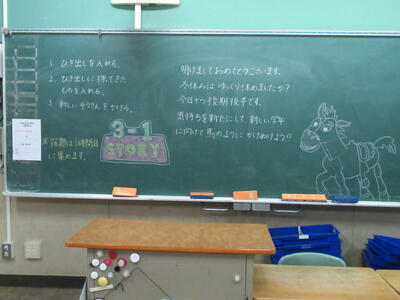 1. ひき出しを入れる。
2. ひき出しに持ってきた
ものを入れる。
3. 新しいぞうきんをかける。
※宿題は1時間目
に集めます。
3-1
STORY
明けましておめでとうございます。
冬休みはゆっくり休めましたか?
今日から後期後半です。
気持ちを新たにして、新しい学年
に向けて馬のようにかけぬけよう!!